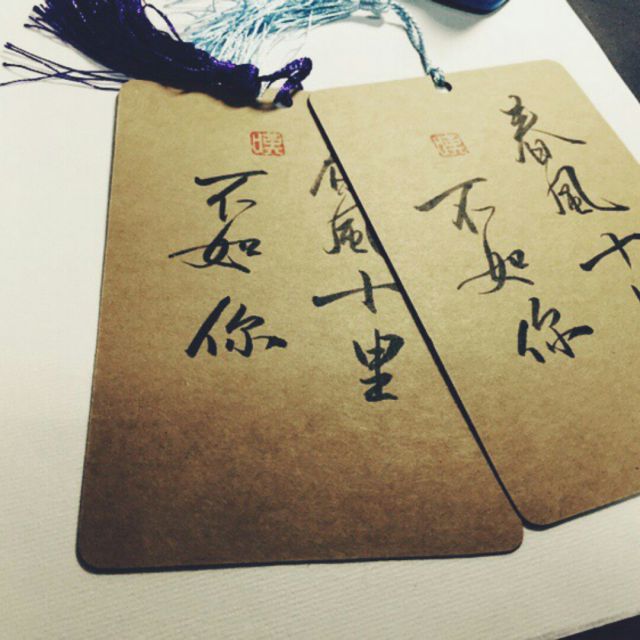 春風十里
不如你
春風十
不如你